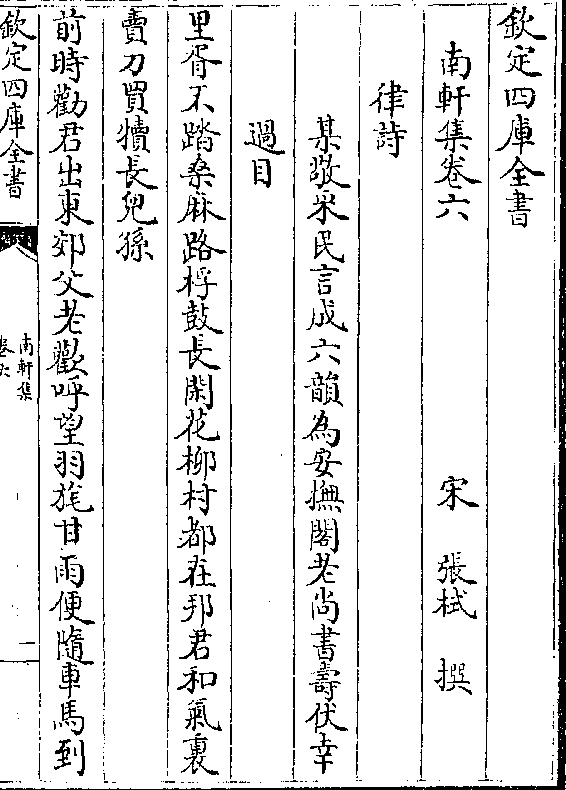 欽定四庫全書
南軒集卷六
宋 張栻 撰
律詩
某敬采民言成六韻為安撫閣老尚書壽伏幸
過目
里胥不踏桑麻路桴鼓長閑花柳村都在邦君和氣裏
賣刀買犢長兒孫
前時勸君出東郊父老歡呼望羽旄甘雨便隨車馬到
欽定四庫全書
南軒集
卷六